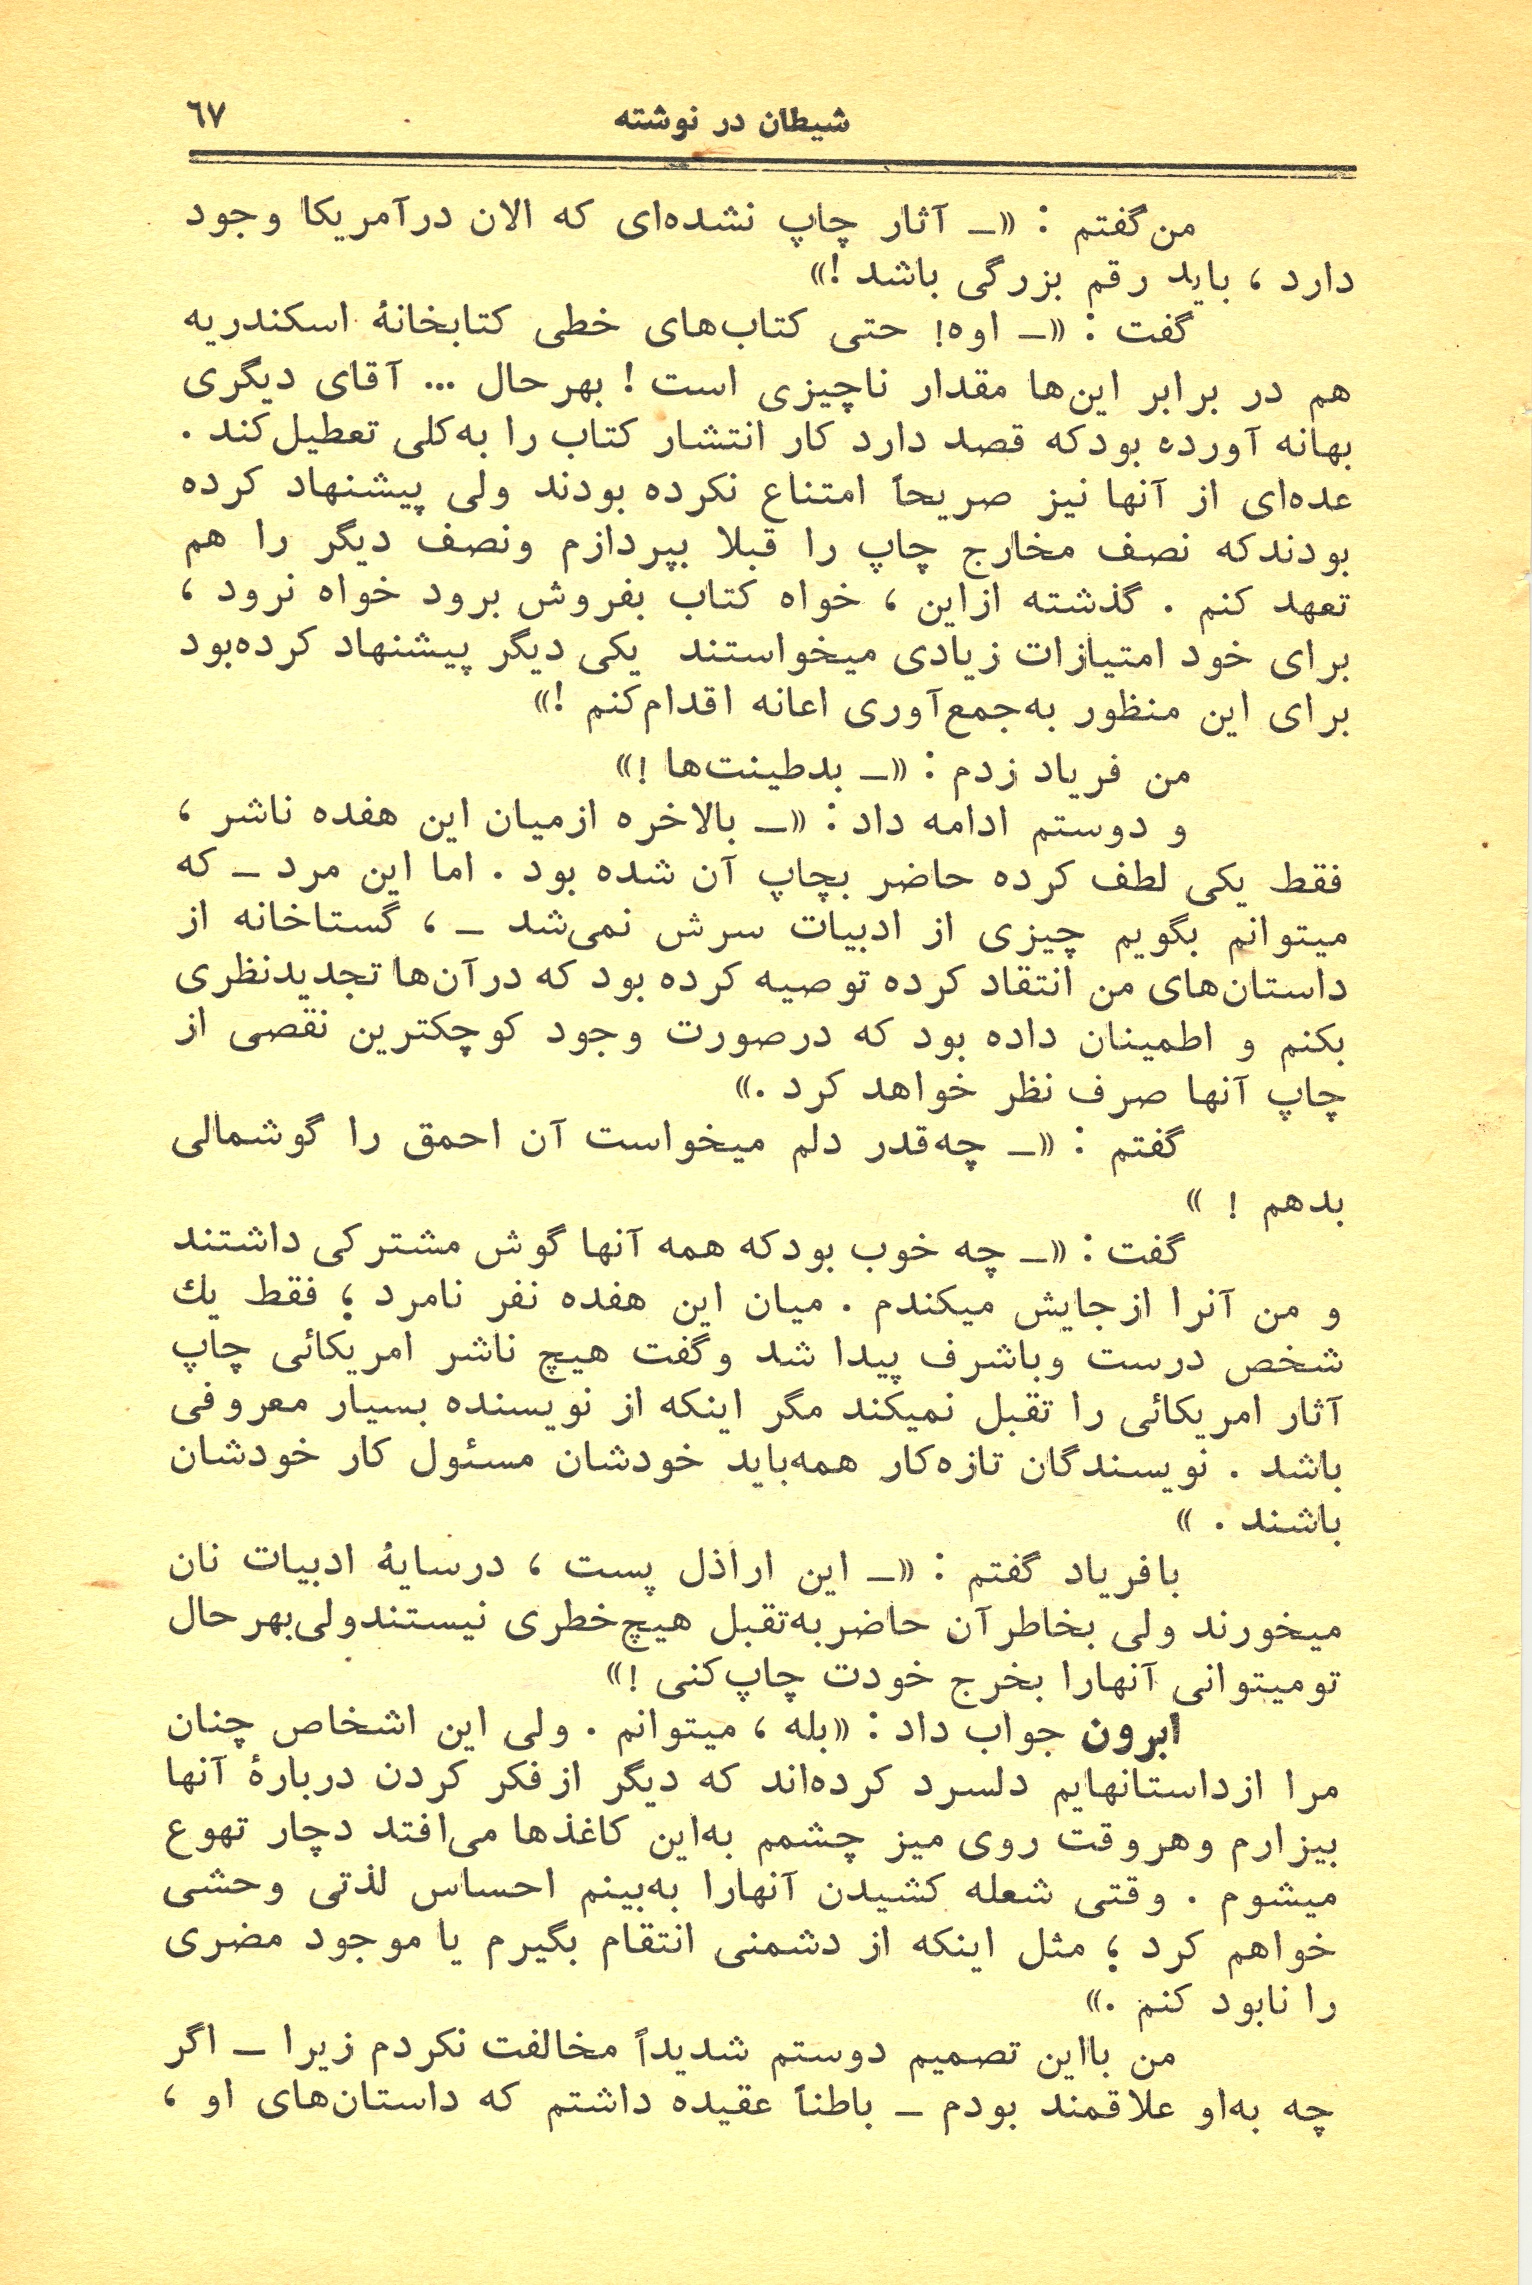 شیطان در نوشته ٦٧
من گفتم : «ـ آثار چاپ نشده‌ای که الان درآمریکا وجود
دارد ، باید رقم بزرگی باشد !»
گفت : «ـ اوه! حتی کتاب‌های خطی کتابخانهٔ اسکندریه
هم در برابر این‌ها مقدار ناچیزی است ! بهرحال ... آقای دیگری
بهانه آورده بودکه قصد دارد کار انتشار کتاب را به‌کلی تعطیل‌کند .
عده‌ای از آنها نیز صریحاً امتناع نکرده بودند ولی پیشنهاد کرده
بودندکه نصف مخارج چاپ را قبلا بپردازم ونصف دیگر را هم
تعهد کنم . گذشته ازاین ، خواه کتاب بفروش برود خواه نرود ،
برای خود امتیازات زیادی میخواستند یکی دیگر پیشنهاد کرده‌بود
برای این منظور به‌جمع‌آوری اعانه اقدام‌کنم !»
من فریاد زدم : «ـ بدطینت‌ها !»
و دوستم ادامه داد : «ـ بالاخره ازمیان این هفده ناشر ،
فقط یکی لطف کرده حاضر بچاپ آن شده بود . اما این مرد ـ که
میتوانم بگویم چیزی از ادبیات سرش نمی‌شد ـ ، گستاخانه از
داستان‌های من انتقاد کرده توصیه کرده بود که درآن‌ها تجدیدنظری
بکنم و اطمینان داده بود که درصورت وجود کوچکترین نقصی از
چاپ آنها صرف نظر خواهد کرد .»
گفتم : «ـ چه‌قدر دلم میخواست آن احمق را گوشمالی
بدهم ! »
گفت : «ـ چه خوب بودکه همه آنها گوش مشترکی داشتند
و من آنرا ازجایش میکندم . میان این هفده نفر نامرد ؛ فقط یك
شخص درست وباشرف پیدا شد وگفت هیچ ناشر امریکائی چاپ
آثار امریکائی را تقبل نمیکند مگر اینکه از نویسنده بسیار معروفی
باشد . نویسندگان تازه‌کار همه‌باید خودشان مسئول کار خودشان
باشند . »
بافریاد گفتم : «ـ این اراذل پست ، درسایهٔ ادبیات نان
میخورند ولی بخاطرآن حاضربه‌تقبل هیچ‌خطری نیستندولی‌بهرحال
تومیتوانی آنهارا بخرج خودت چاپ‌کنی !»
ابرون جواب داد : «بله ، میتوانم . ولی این اشخاص چنان
مرا ازداستانهایم دلسرد کرده‌اند که دیگر ازفکر کردن دربارهٔ آنها
بیزارم وهروقت روی میز چشمم به‌این کاغذها می‌افتد دچار تهوع
میشوم . وقتی شعله کشیدن آنهارا به‌بینم احساس لذتی وحشی
خواهم کرد ؛ مثل اینکه از دشمنی انتقام بگیرم یا موجود مضری
را نابود کنم .»
من بااین تصمیم دوستم شدیداً مخالفت نکردم زیرا ـ اگر
چه به‌او علاقمند بودم ـ باطناً عقیده داشتم که داستان‌های او ،